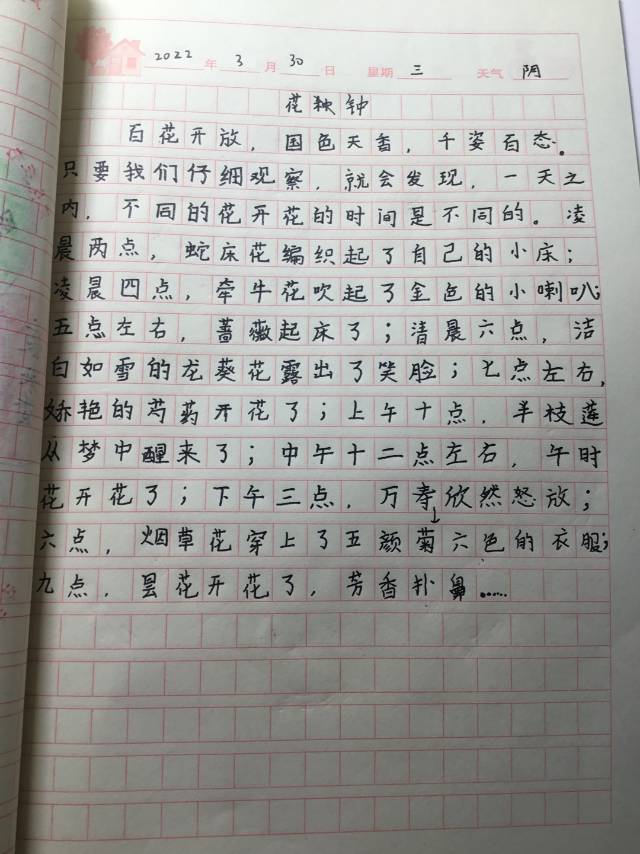 2022年3月30日 星期三 天气阴
花钟
百花开放，国色天香，千姿百态。
只要我们仔细观察，就会发现，一天之
内，不同的花开花的时间是不同的。凌
晨两点，蛇床花编织起了自己的小床；
凌晨四点，牵牛花吹起了金色的小喇叭；
五点左右，蔷薇起床了；清晨六点，洁
白如雪的龙葵花露出了笑脸；七点左右，
娇艳的芍药开花了；上午十点，半枝莲
从梦中醒来了；中午十二点左右，午时
花开花了；下午三点，万寿欣然怒放；
六点，烟草花穿上了五颜菊六色的衣服；
九点，昙花开花了，芳香扑鼻……